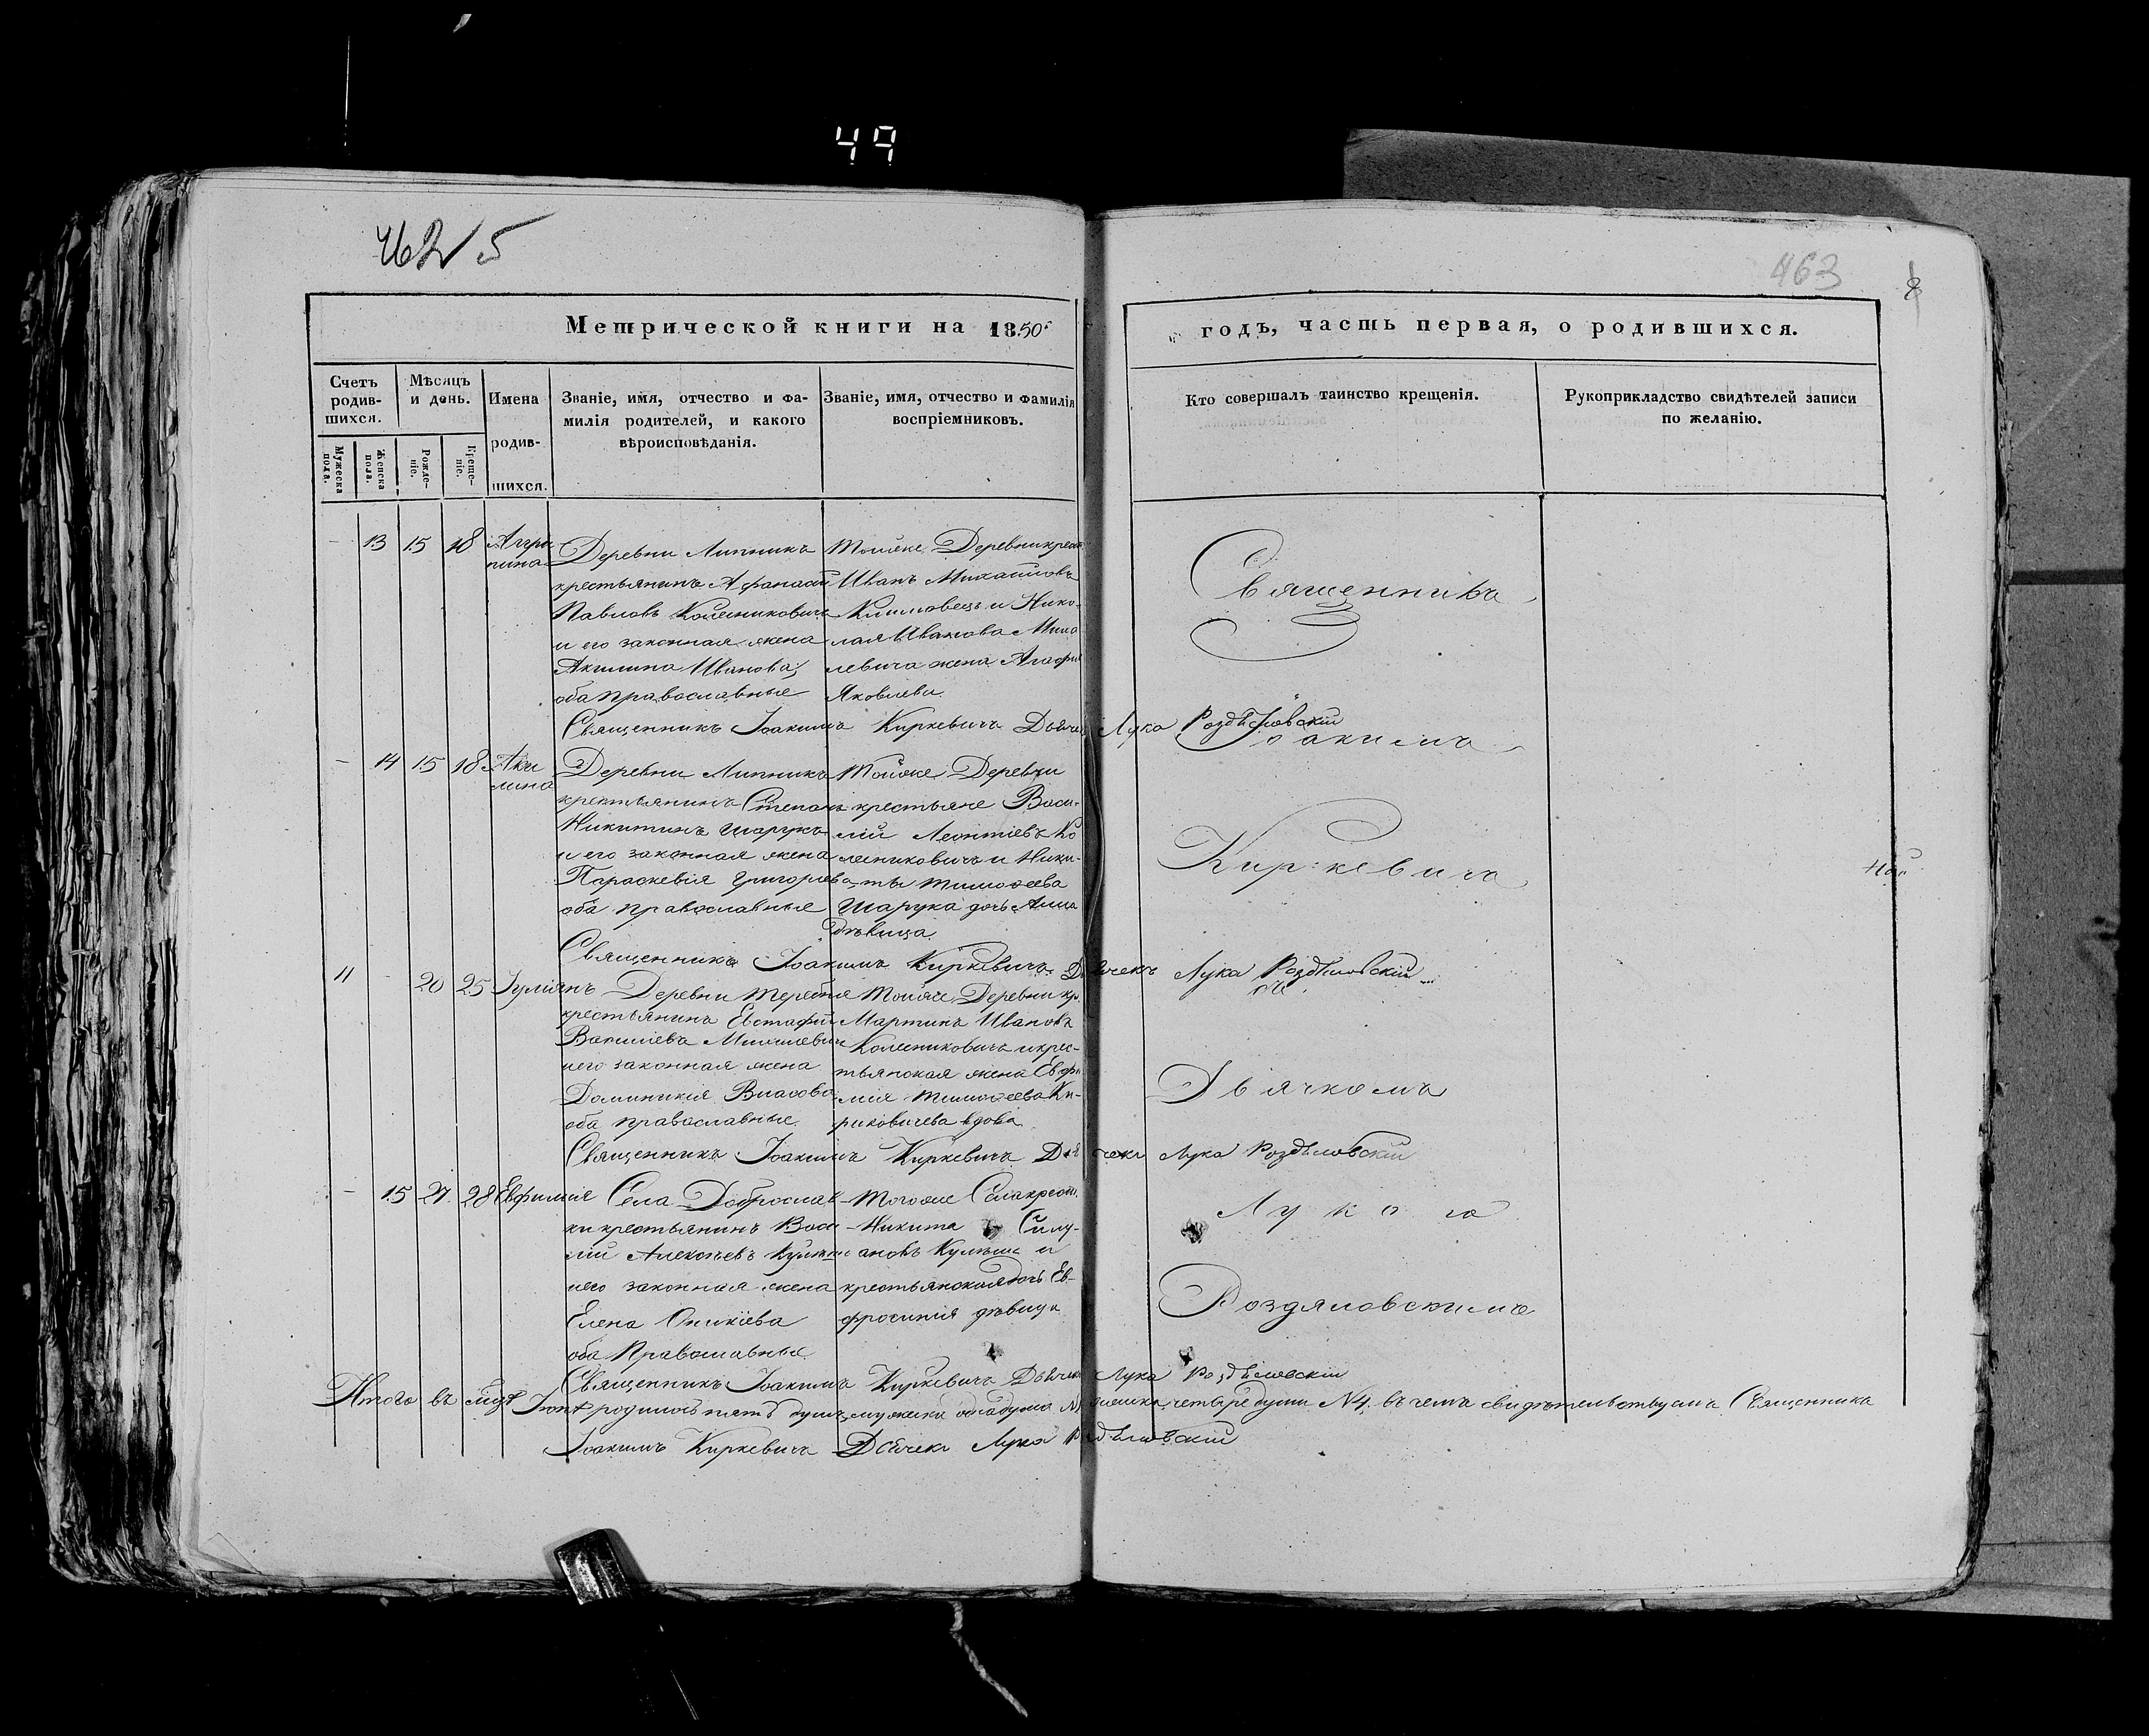 49
462 5
463
Метрической книги на 1850
годъ, часть первая, о родившихся.
Счетъ родив-шихся.
Мѣсяцъ и день.
Имена родив-шихся.
Званіе, имя, отчество и фа-
милія родителей, и какого
вѣроисповѣданія.
Званіе, имя, отчество и фамилія
воспріемниковъ.
Кто совершалъ таинство крещенія.
Рукоприкладство свидѣтелей записи
по желанію.
Мужеска пола.
Женска пола.
Рожде-ніе.
Креще-ніе.
13 15 18 Агри
пина
Деревни Липникъ
крестьянинъ Афанасій
Павловъ Колесниковичъ
и его законная жена
Акилина Иванова,
оба православные
Тойже Деревни крест.
Иванъ Михайловъ
Климовецъ и Нико-
лая Иванова
жена Агафія
Яковлева
Священникъ Іоакимъ Киркевичъ Дьячекъ Лука Роздѣловскій
14 15 18 Аки
лина
Деревни Липникъ
крестьянинъ Степанъ
Никитинъ Шарукъ
и его законная жена
Параскевія Григорьева
оба православные
Тойже Деревни
крестьяне Васи-
лій Леонтіевъ Ко
лесниковичъ и Ники-
ты Тимоѳеева
Шарука дочь Анна
дѣвица
Священникъ Іоакимъ Киркевичъ Дьячекъ Лука Роздѣловскій
11 20 25 Іуліанъ
Деревни
крестьянинъ Евстафій
Василіевъ
и его законная жена
Доминикія Власова
оба православные
Тойже Деревни кр.
Мартинъ Ивановъ
Колесниковичъ и крес-
тьянская жена Евфи
мія Тимоѳеева Ки-
риковичева вдова
Священникъ Іоакимъ Киркевичъ Дьячекъ Лука Роздѣловскій
15 27 28 Евфимія
Села Доброслав
ки крестьянинъ Васи
лій Алексіевъ
и его законная жена
Елена Оникіева
оба Православные
Тогоже Села крест.
Никита Силу-
ановъ Кулешъ и
крестьянская дочь Ев-
фросинія дѣвица
Священникъ Іоакимъ Киркевичъ Дьячекъ Лука Роздѣловскій
Священникъ
Іоакимъ
Киркевичъ
Дьячкомъ
Лукою
Роздяловскимъ
Итого въ Іюнѣ родилось пять душъ, мужеска одна душа женска четыре души №4, въ чемъ свидѣтельствуемъ Священникъ
Іоакимъ Киркевичъ Дьячекъ Лука Роздѣловскій